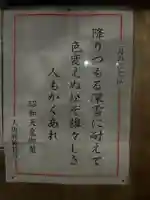 降りつもる深雪に耐えて
色変えぬ松ぞ雄々しき
人もかくあれ
昭和天皇御製